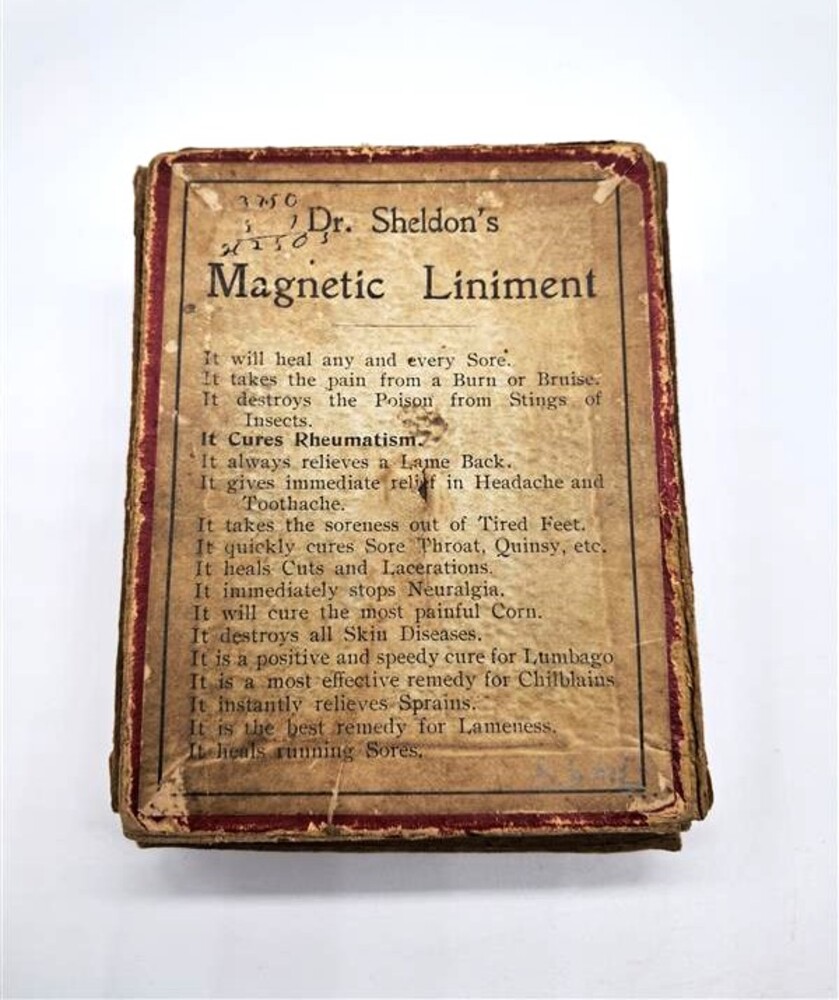 3750
Dr. Sheldon's
Magnetic Liniment
It will heal any and every Sore.
It takes the pain from a Burn or Bruise.
It destroys the Poison from Stings of
Insects.
It Cures Rheumatism.
It always relieves a Lame Back.
It gives immediate relief in Headache and
Toothache.
It takes the soreness out of Tired Feet.
It quickly cures Sore Throat, Quinsy, etc.
It heals Cuts and Lacerations.
It immediately stops Neuralgia.
It will cure the most painful Corn.
It destroys all Skin Diseases.
It is a positive and speedy cure for Lumbago
It is a most effective remedy for Chilblains
It instantly relieves Sprains.
It is the best remedy for Lameness.
It heals running Sores.